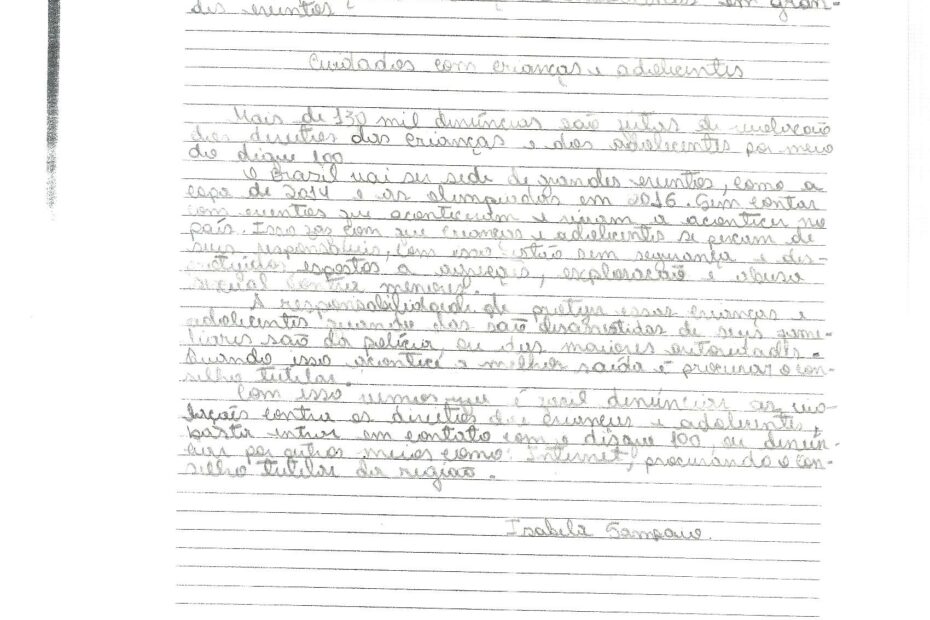 des eventos em gran-
Cuidados com crianças e adolecentes
Mais de 130 mil denúncias são feitas de violação
dos direitos das crianças e dos adolecentes por meio
do disque 100
O Brasil vai ser sede de grandes eventos, como a
copa de 2014 e as olimpiadas em 2016. Sem contar
com eventos que aconteceram e viram a acontecer no
país. Isso faz com que crianças e adolecentes se percam de
seus responsáveis, com isso estão sem segurança e des-
expostos a agreções, exploração e abuso
sexual contra menores.
A responsabilidade de proteger essas crianças e
adolecentes quando elas são de seus fami-
liares são da polícia ou das maiores autoridades.
Quando isso acontece a melhor saída é procurar o con-
selho tutelar.
Com isso vemos que é facil denúnciar as vio-
laçoes contra os direitos das crianças e adolecentes,
basta entrar em contato com o disque 100 ou denún-
ciar por outros meios como: Internet, procurando o con-
selho tutelar da região.
Isabela Sampaio